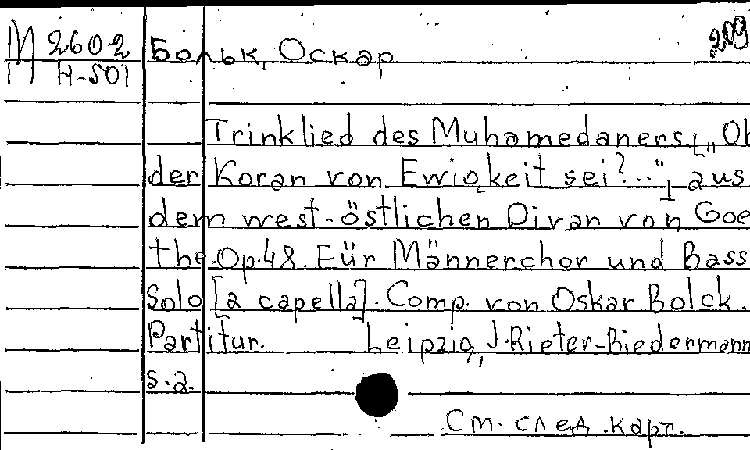 М 2602
Н-501
Больк, Оскар
Trinklied des Muhamedaners [„Ob
der Koran von Ewigkeit sei?.."] aus
dem west-östlichen Divan von Goe
the Op.48. Für Männerchor und Bass
Solo [a capella]. Comp. von Oskar Bolck.
Partitur. Leipzig, J. Rieter-Biedermann,
s.a.
См. след. карт.